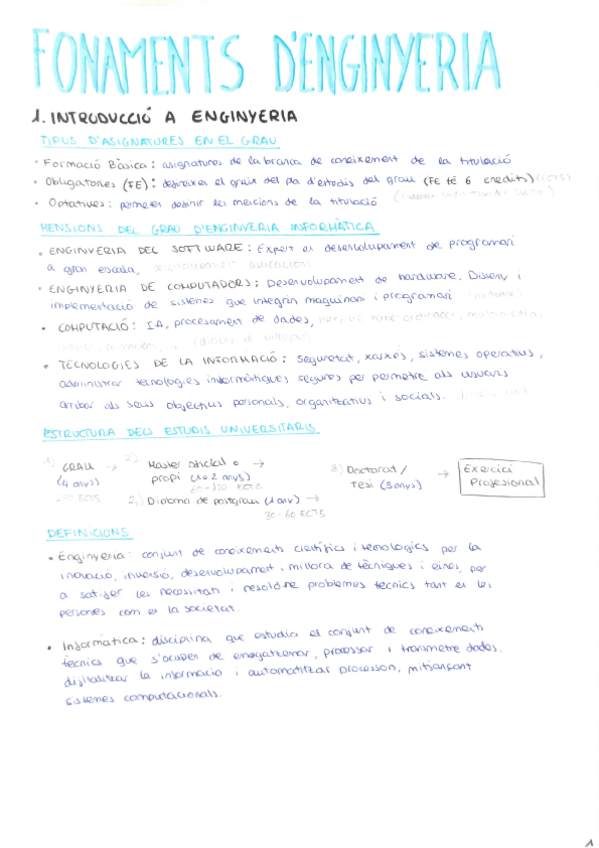 FONAMENTS D'ENGINYERIA
1. INTRODUCCIÓ A ENGINYERIA
TIPUS D'ASIGNATURES EN EL GRAU
• Formació Bàsica: asignatures de la branca de coneixement de la titulació
• Obligatories (FE): del pla d'estudis del grau (FE té 6 credits) (ECTS)
• Optatives: permeten definir les mencions de la titulació
MENSIONS DEL GRAU D'ENGINYERIA INFORMÀTICA
• ENGINYERIA DEL SOFTWARE: Expert en desenvolupament de programari
a gran escala,
• ENGINYERIA DE COMPUTADORS: Desenvolupament de hardware. Disseny i
implementació de sistemes que integrin maquinari i programari (hardware)
• COMPUTACIÓ: IA, procesament de dades,
• TECNOLOGIES DE LA INFORMACIÓ: seguretat, xarxes, sistemes operatius,
administrar tecnologies informàtiques segures per permetre als usuaris
arribar als seus objectius personals, organitzatius i socials.
ESTRUCTURA DELS ESTUDIS UNIVERSITARIS
1) GRAU → 2) Master oficial o → 3) Doctorat / → Exercici
(4 anys) propi (1 o 2 anys) Tesi (3 anys) Profesional
240 ECTS 60-120 ECTS
2) Diploma de postgrau (1 any) →
30-60 ECTS
DEFINICIONS
• Enginyeria: conjunt de coneixements científics i tecnologics per la
inovació, inversió, desenvolupament i millora de tècniques i eines per
a satisfer les necessitats i resoldre problemes tècnics tant en les
persones com en la societat.
• Informàtica: disciplina que estudia el conjunt de coneixements
tècnics que s'ocupen de emmagatzemar, processar i transmetre dades,
digitalitzar la informacio i automatitzar processos, mitjançant
sistemes computacionals.
1